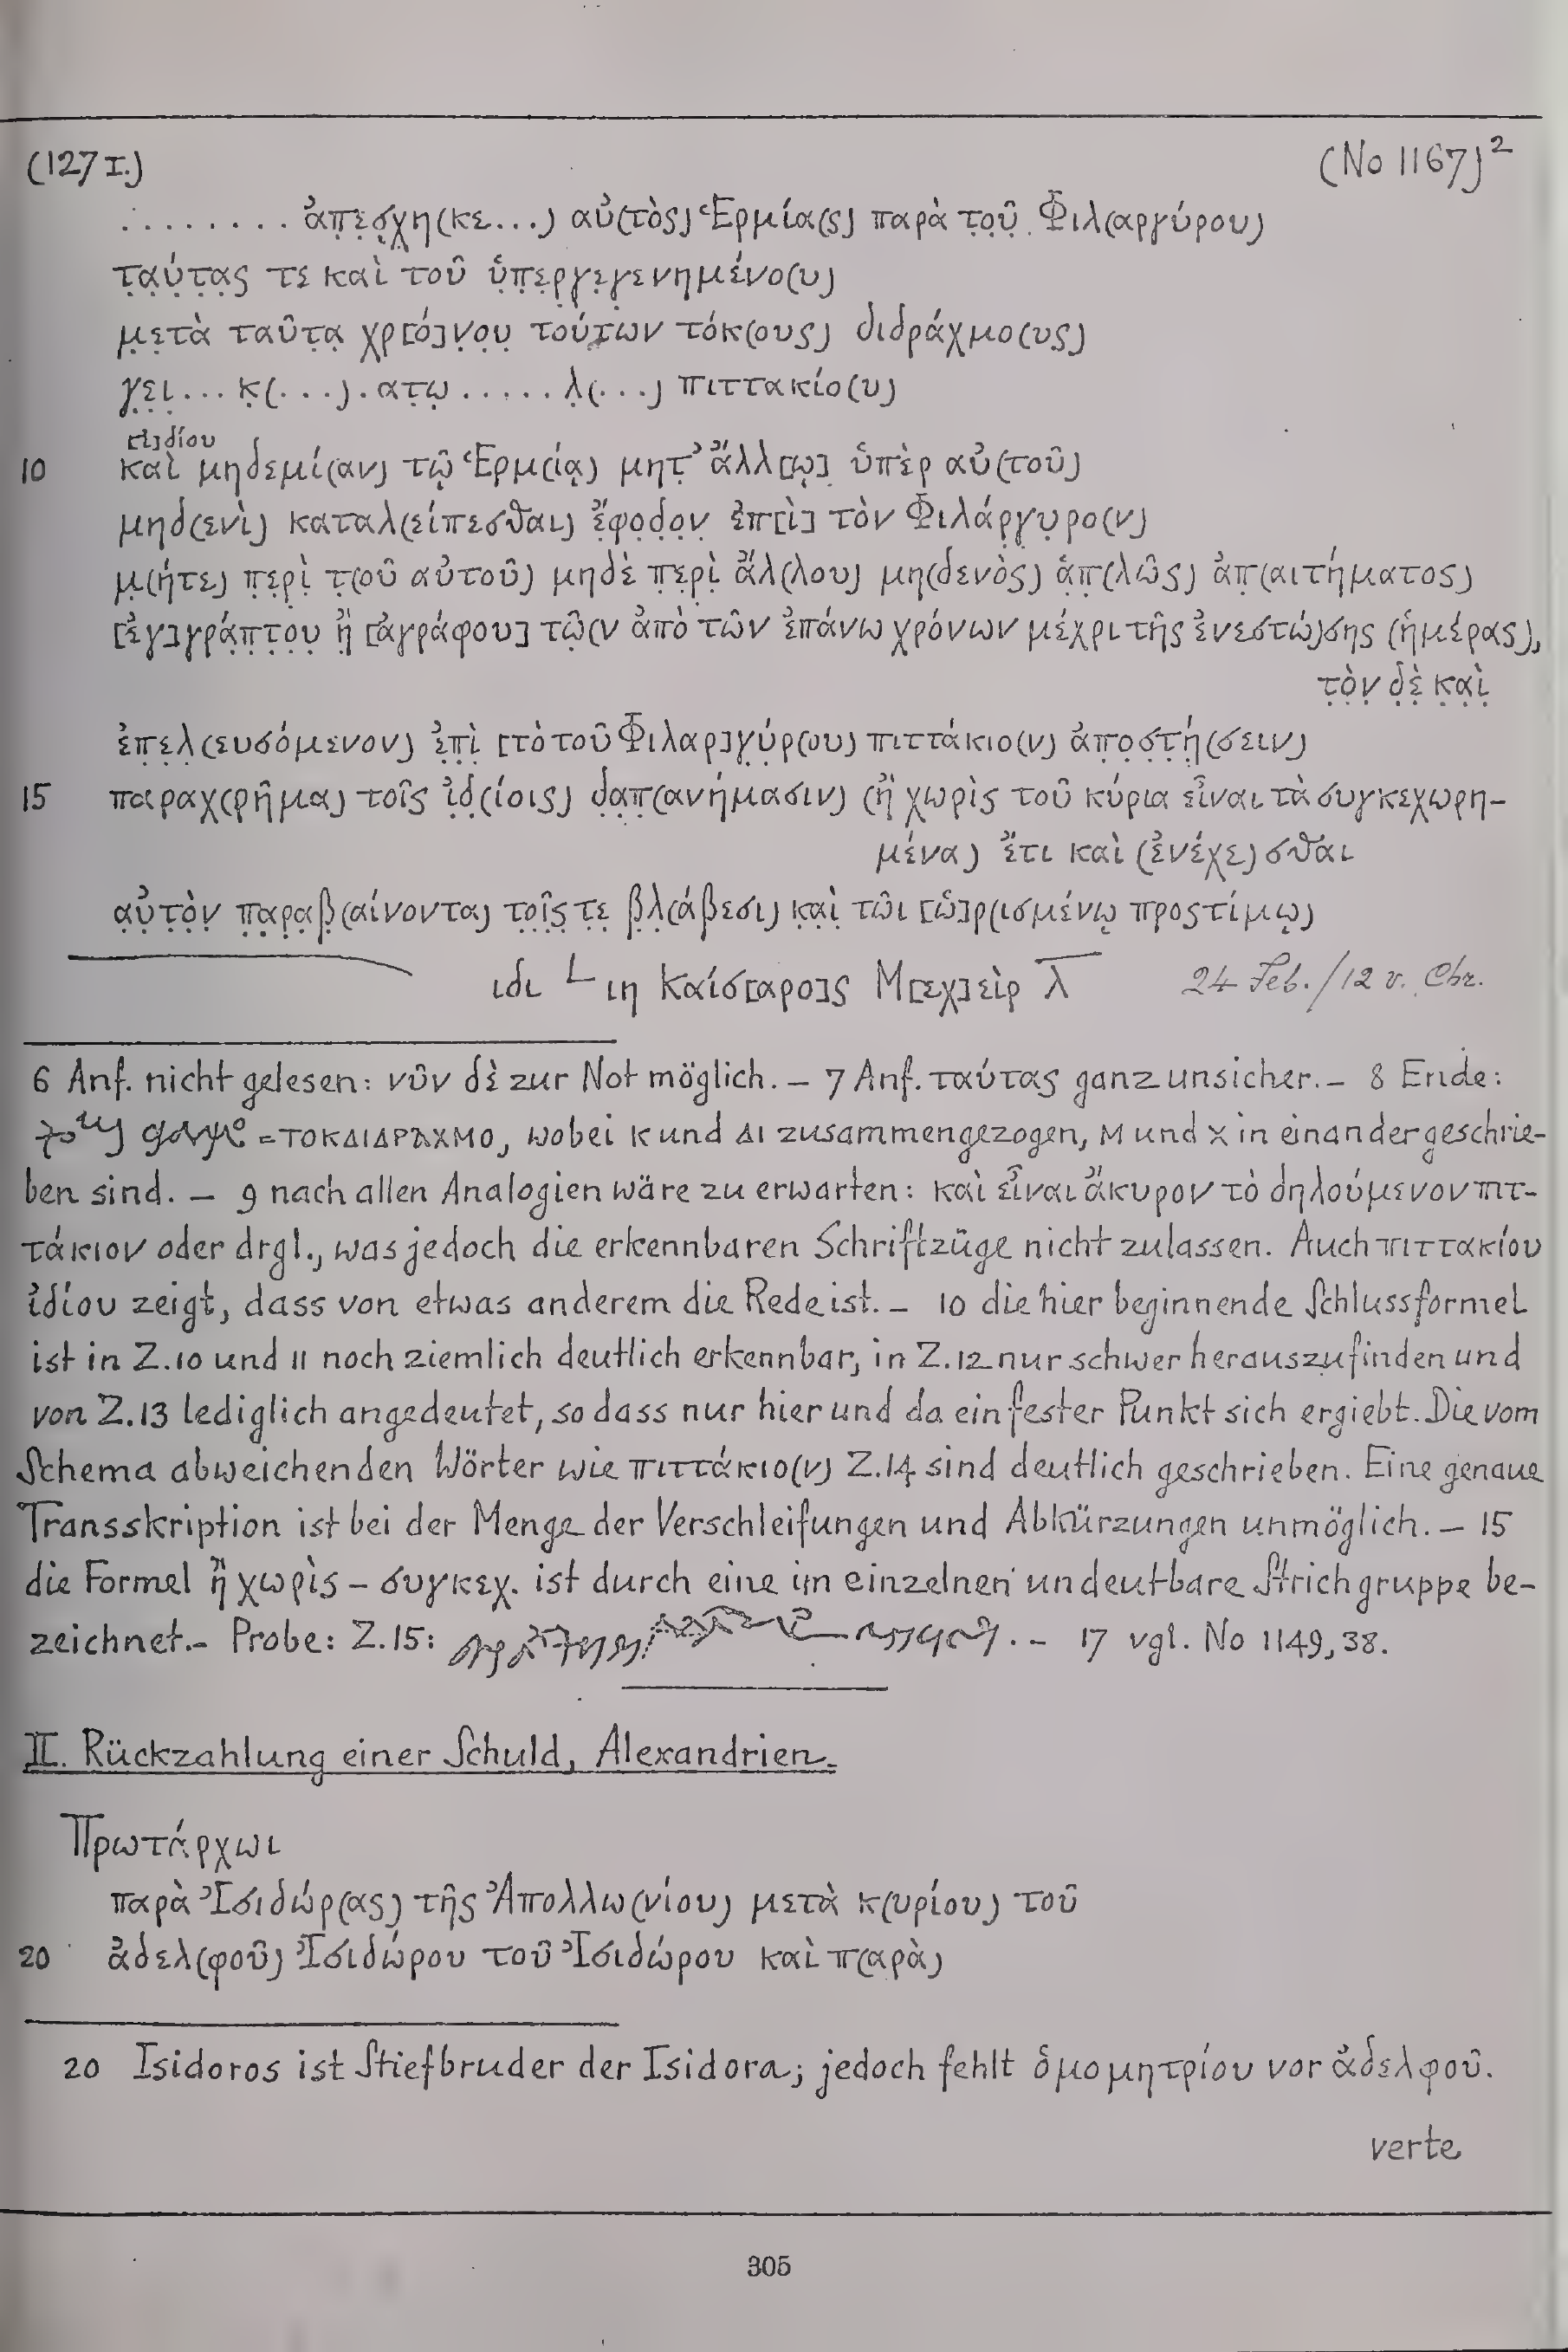 (127 I.) (No 1167)²
........ ἀπ̣ε̣σ̣χη(κε...) αὐ(τὸς) Ἑρμία(ς) παρὰ τ̣ο̣ῦ̣ Φιλ(αργύρου)
τ̣α̣ύ̣τ̣α̣ς τε καὶ τοῦ ὑ̣π̣ε̣ρ̣γ̣ε̣γ̣ενημένο(υ)
μ̣ε̣τὰ ταῦτ̣α̣ χρ[ό]ν̣ο̣υ̣ τούτ̣ων τόκ(ους) διδράχμο(υς)
γ̣ε̣ι̣... κ̣(...).ατ̣ῳ̣.....λ̣(...) πιττακίο(υ)
[ἰ]δίου
10 καὶ μηδεμί(αν) τῷ Ἑρμ(ίᾳ) μητ̣᾽ ἄλλ[ῳ] ὑπὲρ αὐ(τοῦ)
μηδ(ενὶ) καταλ(είπεσθαι) ἔ̣φ̣ο̣δ̣ο̣ν̣ ἐ̣π[ὶ] τὸν Φιλάρ̣γ̣υ̣ρο(ν)
μ̣(ήτε) π̣ε̣ρ̣ὶ̣ τ̣(οῦ αὐτοῦ) μηδὲ π̣ε̣ρ̣ὶ̣ ἄ̣λ(λου) μη(δενὸς) ἁ̣π̣(λῶς) ἀπ̣(αιτήματος)
[ἐ̣γ̣]γρά̣π̣τ̣ο̣υ̣ ἢ̣ [ἀ̣γράφου] τῶ̣(ν ἀπὸ τῶν ἐπάνω χρόνων μέχρι τῆς ἐνεστώ)σης (ἡμέρας),
τ̣ὸ̣ν̣ δ̣ὲ̣ κ̣α̣ὶ̣
ἐ̣πελ(ευσόμενον) ἐ̣π̣ὶ̣ [τὸ τοῦ Φιλαρ]γ̣ύ̣ρ(ου) πιττάκιο(ν) ἀ̣π̣ο̣σ̣τ̣ή̣(σειν)
15 παραχ(ρῆμα) τοῖς ἰ̣δ̣(ίοις) δ̣α̣π̣(ανήμασιν) (ἢ χωρὶς τοῦ κύρια εἶναι τὰ συγκεχωρη-
μένα) ἔτι καὶ (ἐνέχε)σθαι
α̣ὐ̣τ̣ὸ̣ν̣ π̣α̣ρ̣α̣β̣(αίνοντα) τ̣ο̣ῖ̣ς̣ τ̣ε̣ β̣λ̣(άβεσι) κ̣α̣ὶ̣ τῶι [ὡ]ρ(ισμένῳ προςτίμῳ)
ιδι └ ιη Καίσ[αρο]ς Μ[εχ]εὶρ λ̅ 24 Feb./12 v. Chr.
6 Anf. nicht gelesen: νῦν δὲ zur Not möglich. – 7 Anf. ταύτας ganz unsicher. – 8 Ende:
= ΤΟΚΔΙΔΡΑΧΜΟ, wobei Κ und ΔΙ zusammengezogen, Μ und Χ in einander geschrie-
ben sind. – 9 nach allen Analogien wäre zu erwarten: καὶ εἶναι ἄκυρον τὸ δηλούμενον πιτ-
τάκιον oder drgl., was jedoch die erkennbaren Schriftzüge nicht zulassen. Auch πιττακίου
ἰδίου zeigt, dass von etwas anderem die Rede ist. – 10 die hier beginnende Schlussformel
ist in Z. 10 und 11 noch ziemlich deutlich erkennbar, in Z. 12 nur schwer herauszufinden und
von Z. 13 lediglich angedeutet, so dass nur hier und da ein fester Punkt sich ergiebt. Die vom
Schema abweichenden Wörter wie πιττάκιο(ν) Z. 14 sind deutlich geschrieben. Eine genaue
Transskription ist bei der Menge der Verschleifungen und Abkürzungen unmöglich. – 15
die Formel ἢ χωρὶς – συγκεχ. ist durch eine im einzelnen undeutbare Strichgruppe be-
zeichnet. – Probe: Z. 15: . – 17 vgl. No 1149, 38.
II. Rückzahlung einer Schuld, Alexandrien.
Πρωτάρχωι
παρὰ Ἰσιδώρ(ας) τῆς Ἀπολλω(νίου) μετὰ κ(υρίου) τοῦ
20 ἀδελ(φοῦ) Ἰσιδώρου τοῦ Ἰσιδώρου καὶ π(αρὰ)
20 Isidoros ist Stiefbruder der Isidora; jedoch fehlt ὁμομητρίου vor ἀδελφοῦ.
verte
305